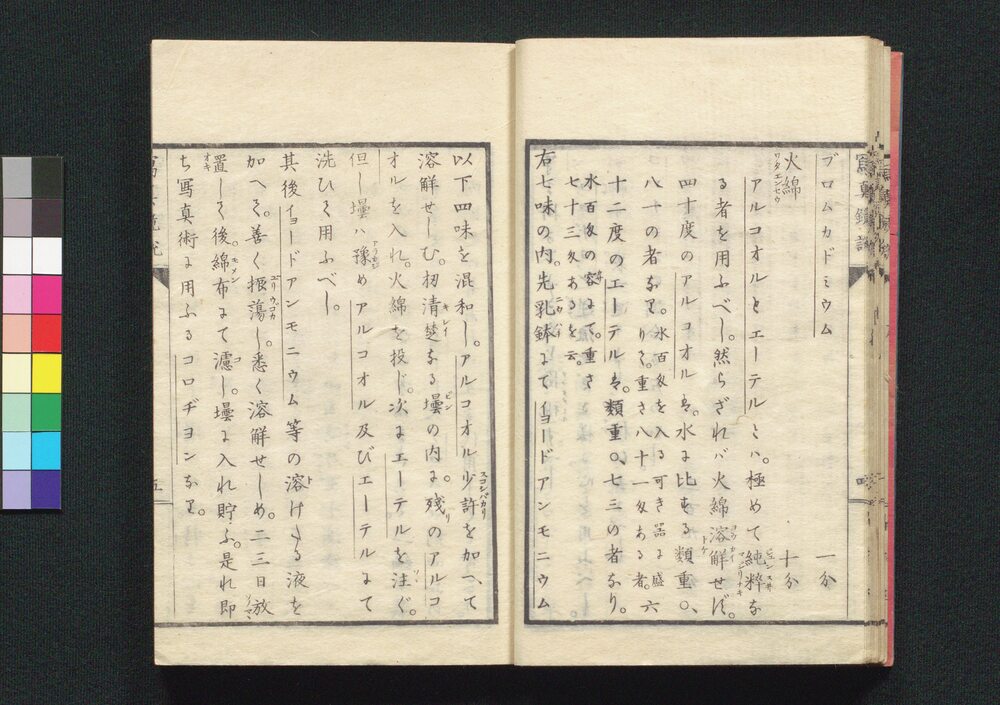 ブロムカドミウム 一分
火綿 ワタエンセウ 十分
アルコオルとエーテルとハ。極めて純粋な
る者を用ふべし。然らざれバ火綿溶解せず。
四十度のアルコオルは。水に比する類重〇、
八一の者なり。水百匁を入る可き器に盛
りて。重さ八十一匁ある者。六
十二度のエーテルは。類重〇、七三の者なり。
水百匁の容にて。重さ
七十三匁あるを云。
右七味の内。先乳鉢にてイヨードアンモニウム
以下四味を混和し。アルコオル少許を加へて
溶解せしむ。扨清楚なる壜の内に。残のアルコ
オルを入れ。火綿を投じ。次にエーテルを注ぐ。
但し壜ハ豫めアルコオル及びエーテルにて
洗ひて用ふべし。
其後イヨードアンモニウム等の溶けたる液を
加へて。善く振蕩し。悉く溶解せしめ。二三日放
置して後。綿布にて濾し。壜に入れ貯ふ。是れ即
ち写真術に用ふるコロヂヨンなり。
五